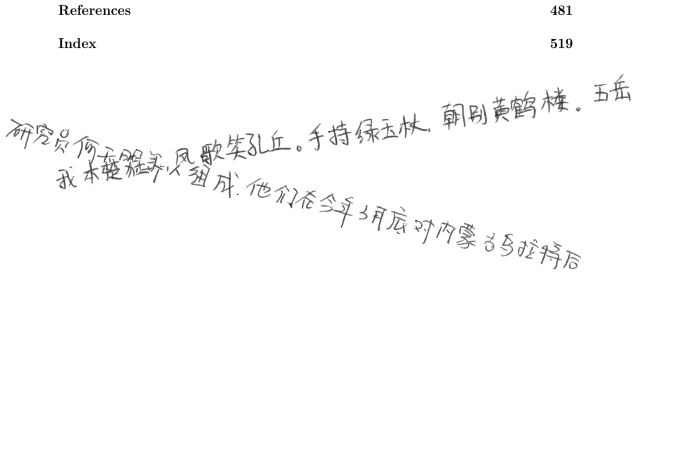 References 481
Index 519
我本楚狂人，凤歌笑孔丘。手持绿玉杖，朝别黄鹤楼。五岳
研究员何 组成.他们在今年3月底对内蒙古乌拉特后